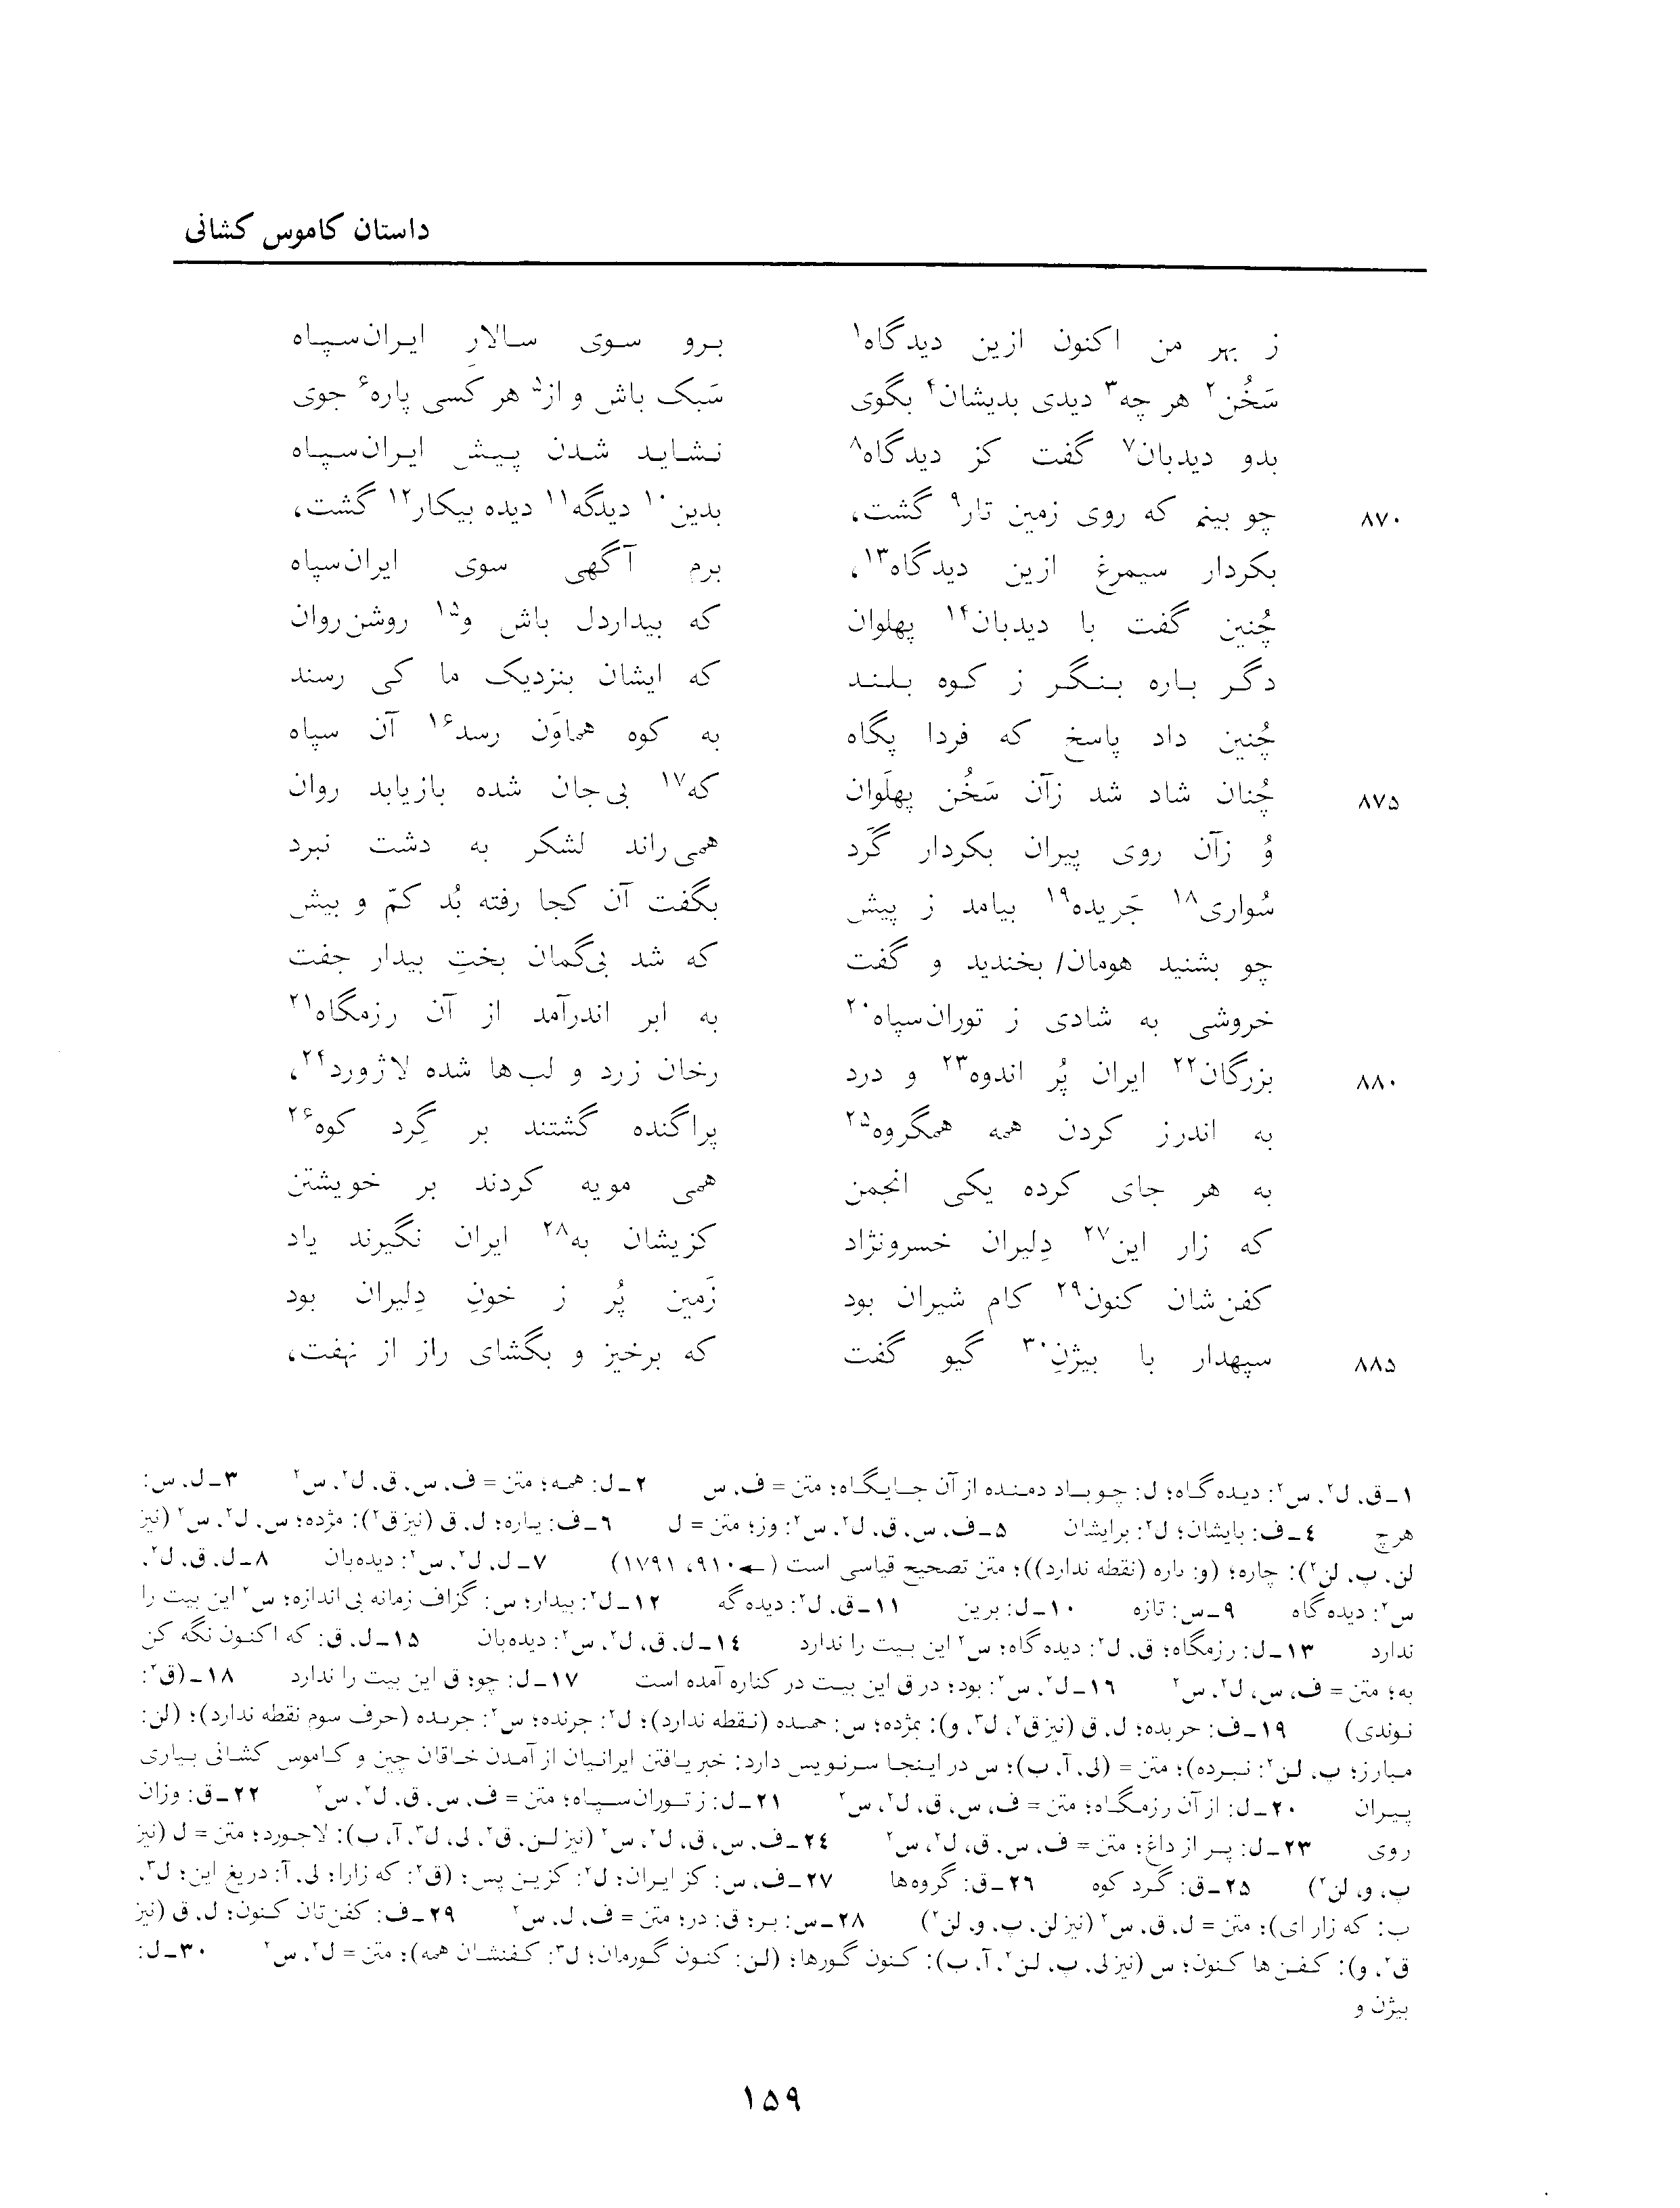 داستان کاموس کشانی
ز بهر من اکنون ازین دیدگاه۱ برو سوی سالارِ ایران‌سپاه
سَخُن۲ هر چه۳ دیدی بدیشان۴ بگوی سَبک باش و از۵ هر کَسی پاره۶ جوی
بدو دیدبان۷ گفت کز دیدگاه۸ نشاید شدن پیش ایران‌سپاه
۸۷۰ چو بینم که روی زمین تار۹ گشت، بدین۱۰ دیدگه۱۱ دیده بیکار۱۲ گشت،
بکردار سیمرغ ازین دیدگاه۱۳، برم آگهی سوی ایران‌سپاه
چُنین گفت با دیدبان۱۴ پهلوان که بیداردل باش و۱۵ روشن‌روان
دگر باره بنگر ز کوه بلند که ایشان بنزدیک ما کی رسند
چُنین داد پاسخ که فردا پگاه به کوه هماوَن رسد۱۶ آن سپاه
۸۷۵ چُنان شاد شد زآن سَخُن پهلَوان که۱۷ بی‌جان شده بازیابد روان
وُ زآن روی پیران بکردار گَرد همی‌راند لشکر به دشت نبرد
سُواری۱۸ جَریده۱۹ بیامد ز پیش بگفت آن کجا رفته بُد کمّ و بیش
چو بشنید هومان/ بخندید و گفت که شد بی‌گمان بختِ بیدار جفت
خروشی به شادی ز توران‌سپاه۲۰ به ابر اندرآمد از آن رزمگاه۲۱
۸۸۰ بزرگان۲۲ ایران پُر اندوه۲۳ و درد رخان زرد و لب‌ها شده لاژورد۲۴،
به اندرز کردن همه همگروه۲۵ پراگنده گشتند بر گِرد کوه۲۶
به هر جای کرده یکی انجمن همی مویه کردند بر خویشتن
که زار این۲۷ دِلیران خسرونژاد کزیشان به۲۸ ایران نگیرند یاد
کفن‌شان کنون۲۹ کام شیران بود زَمین پُر ز خونِ دِلیران بود
۸۸۵ سپهدار با بیژنِ۳۰ گیو گفت که برخیز و بگشای راز از نهفت،
۱ـ ق، ل۲، س۲: دیده‌گاه؛ ل: چو باد دمنده از آن جایگاه؛ متن = ف، س ۲ـ ل: همه؛ متن = ف، س، ق، ل۲، س۲ ۳ـ ل، س:
هرچ ۴ـ ف: بایشان؛ ل۲: برایشان ۵ـ ف، س، ق، ل۲، س۲: وز؛ متن = ل ۶ـ ف: یاره؛ ل، ق (نیز ق۲): مژده؛ س، ل۲، س۲ (نیز
لن، پ، لن۲): چاره؛ (و: ٮاره (نقطه ندارد))؛ متن تصحیح قیاسی است (← ۹۱۰، ۱۷۹۱) ۷ـ ل، ل۲، س۲: دیده‌بان ۸ـ ل، ق، ل۲،
س۲: دیده‌گاه ۹ـ س: تازه ۱۰ـ ل: برین ۱۱ـ ق، ل۲: دیده‌گه ۱۲ـ ل۲: بیدار؛ س: گزاف زمانه بی‌اندازه؛ س۲ این بیت را
ندارد ۱۳ـ ل: رزمگاه؛ ق، ل۲: دیده‌گاه؛ س۲ این بیت را ندارد ۱۴ـ ل، ق، ل۲، س۲: دیده‌بان ۱۵ـ ل، ق: که اکنون نگه کن
به؛ متن = ف، س، ل۲، س۲ ۱۶ـ ل۲، س۲: بود؛ در ق این بیت در کناره آمده است ۱۷ـ ل: چو؛ ق این بیت را ندارد ۱۸ـ (ق۲:
نوندی) ۱۹ـ ف: حریده؛ ل، ق (نیز ق۲، ل۳، و): بمژده؛ س: حمٮده (نقطه ندارد)؛ ل۲: جرنده؛ س۲: جرٮده (حرف سوم نقطه ندارد)؛ (لن:
مبارز؛ پ، لن۲: نبرده)؛ متن = (لی، آ، ب)؛ س در اینجا سرنویس دارد: خبر یافتن ایرانیان از آمدن خاقان چین و کاموس کشانی بیاری
پیران ۲۰ـ ل: از آن رزمگاه؛ متن = ف، س، ق، ل۲، س۲ ۲۱ـ ل: ز توران‌سپاه؛ متن = ف، س، ق، ل۲، س۲ ۲۲ـ ق: وزان
روی ۲۳ـ ل: پر از داغ؛ متن = ف، س، ق، ل۲، س۲ ۲۴ـ ف، س، ق، ل۲، س۲ (نیز لن، ق۲، لی، ل۳، آ، ب): لاجورد؛ متن = ل (نیز
پ، و، لن۲) ۲۵ـ ق: گرد کوه ۲۶ـ ق: گروه‌ها ۲۷ـ ف، س: کز ایران؛ ل۲: کزین پس؛ (ق۲: که زارا؛ لی، آ: دریغ این؛ ل۳،
ب: که زار ای)؛ متن = ل، ق، س۲ (نیز لن، پ، و، لن۲) ۲۸ـ س: بر؛ ق: در؛ متن = ف، ل، س۲ ۲۹ـ ف: کفن‌تان کنون؛ ل، ق (نیز
ق۲، و): کفن‌ها کنون؛ س (نیز لی، پ، لن۲، آ، ب): کنون گورها؛ (لن: کنون گورمان؛ ل۳: کفنشان همه)؛ متن = ل۲، س۲ ۳۰ـ ل:
بیژن و
۱۵۹